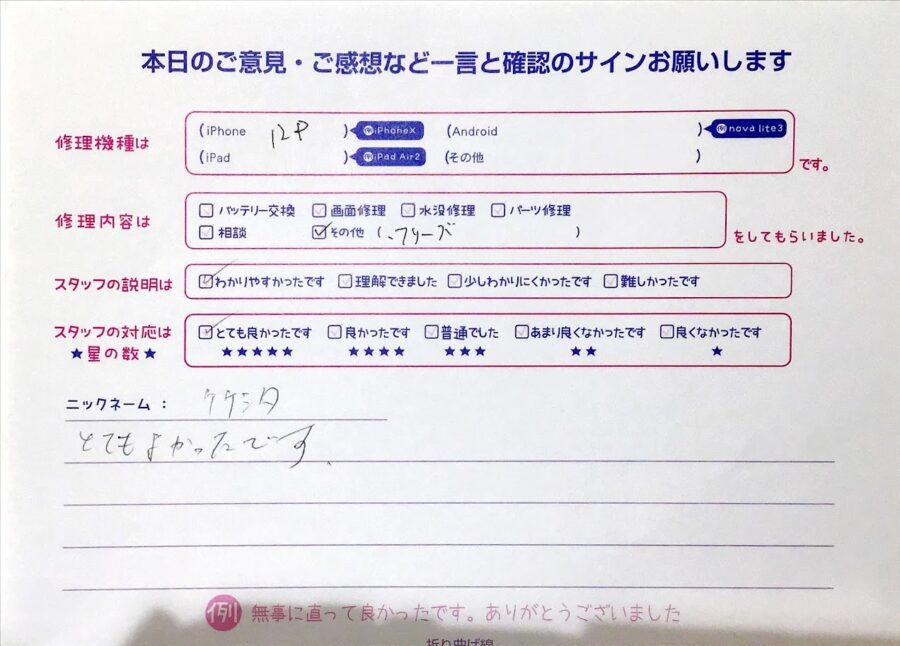 本日のご意見・ご感想など一言と確認のサインお願いします
修理機種は (iPhone 12P ) 例iPhoneX (Android ) 例nova lite3
(iPad ) 例iPad Air2 (その他 ) です。
修理内容は バッテリー交換 画面修理 水没修理 パーツ修理
相談 その他 (フリーズ ) をしてもらいました。
スタッフの説明は わかりやすかったです 理解できました 少しわかりにくかったです 難しかったです
スタッフの対応は とても良かったです 良かったです 普通でした あまり良くなかったです 良くなかったです
★星の数★ ★★★★★ ★★★★ ★★★ ★★ ★
ニックネーム：
とてもよかったです.
例 無事に直って良かったです。ありがとうございました
折り曲げ線